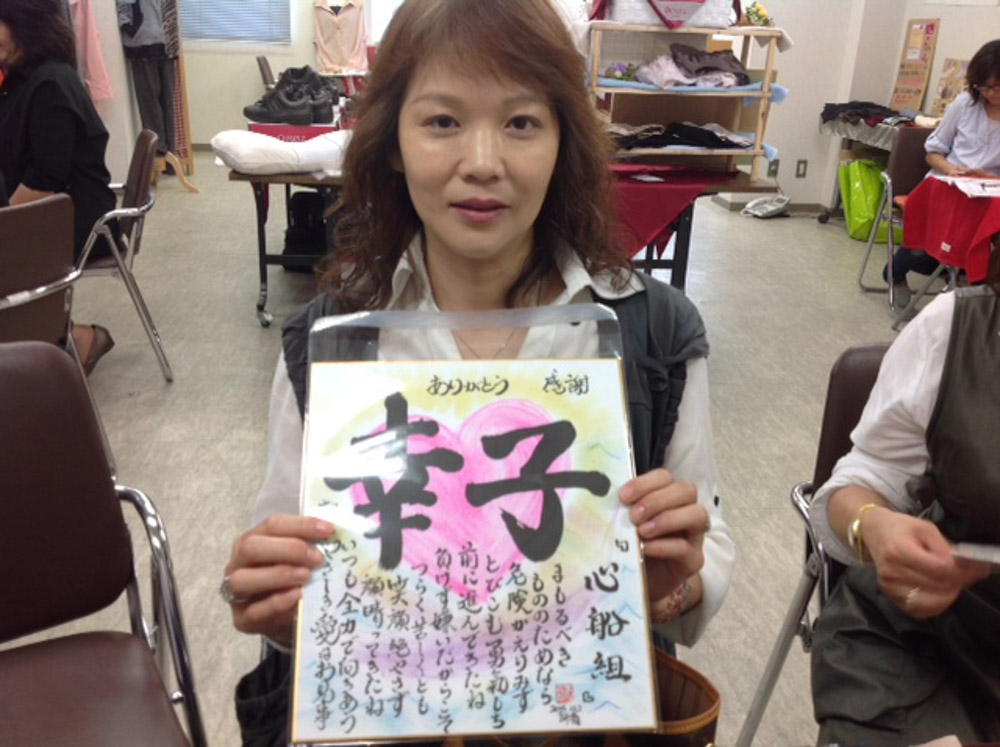 ありがとう 感謝
幸子
「心船組」
まもるべき
もののためなら
危険かえりみず
とびこむ勇気もち
前に進んできたね
負けず嫌いだからこそ
つらく苦しくとも
笑顔絶やさず
顔晴ってきたね
いつも全力で向きあう
愛は